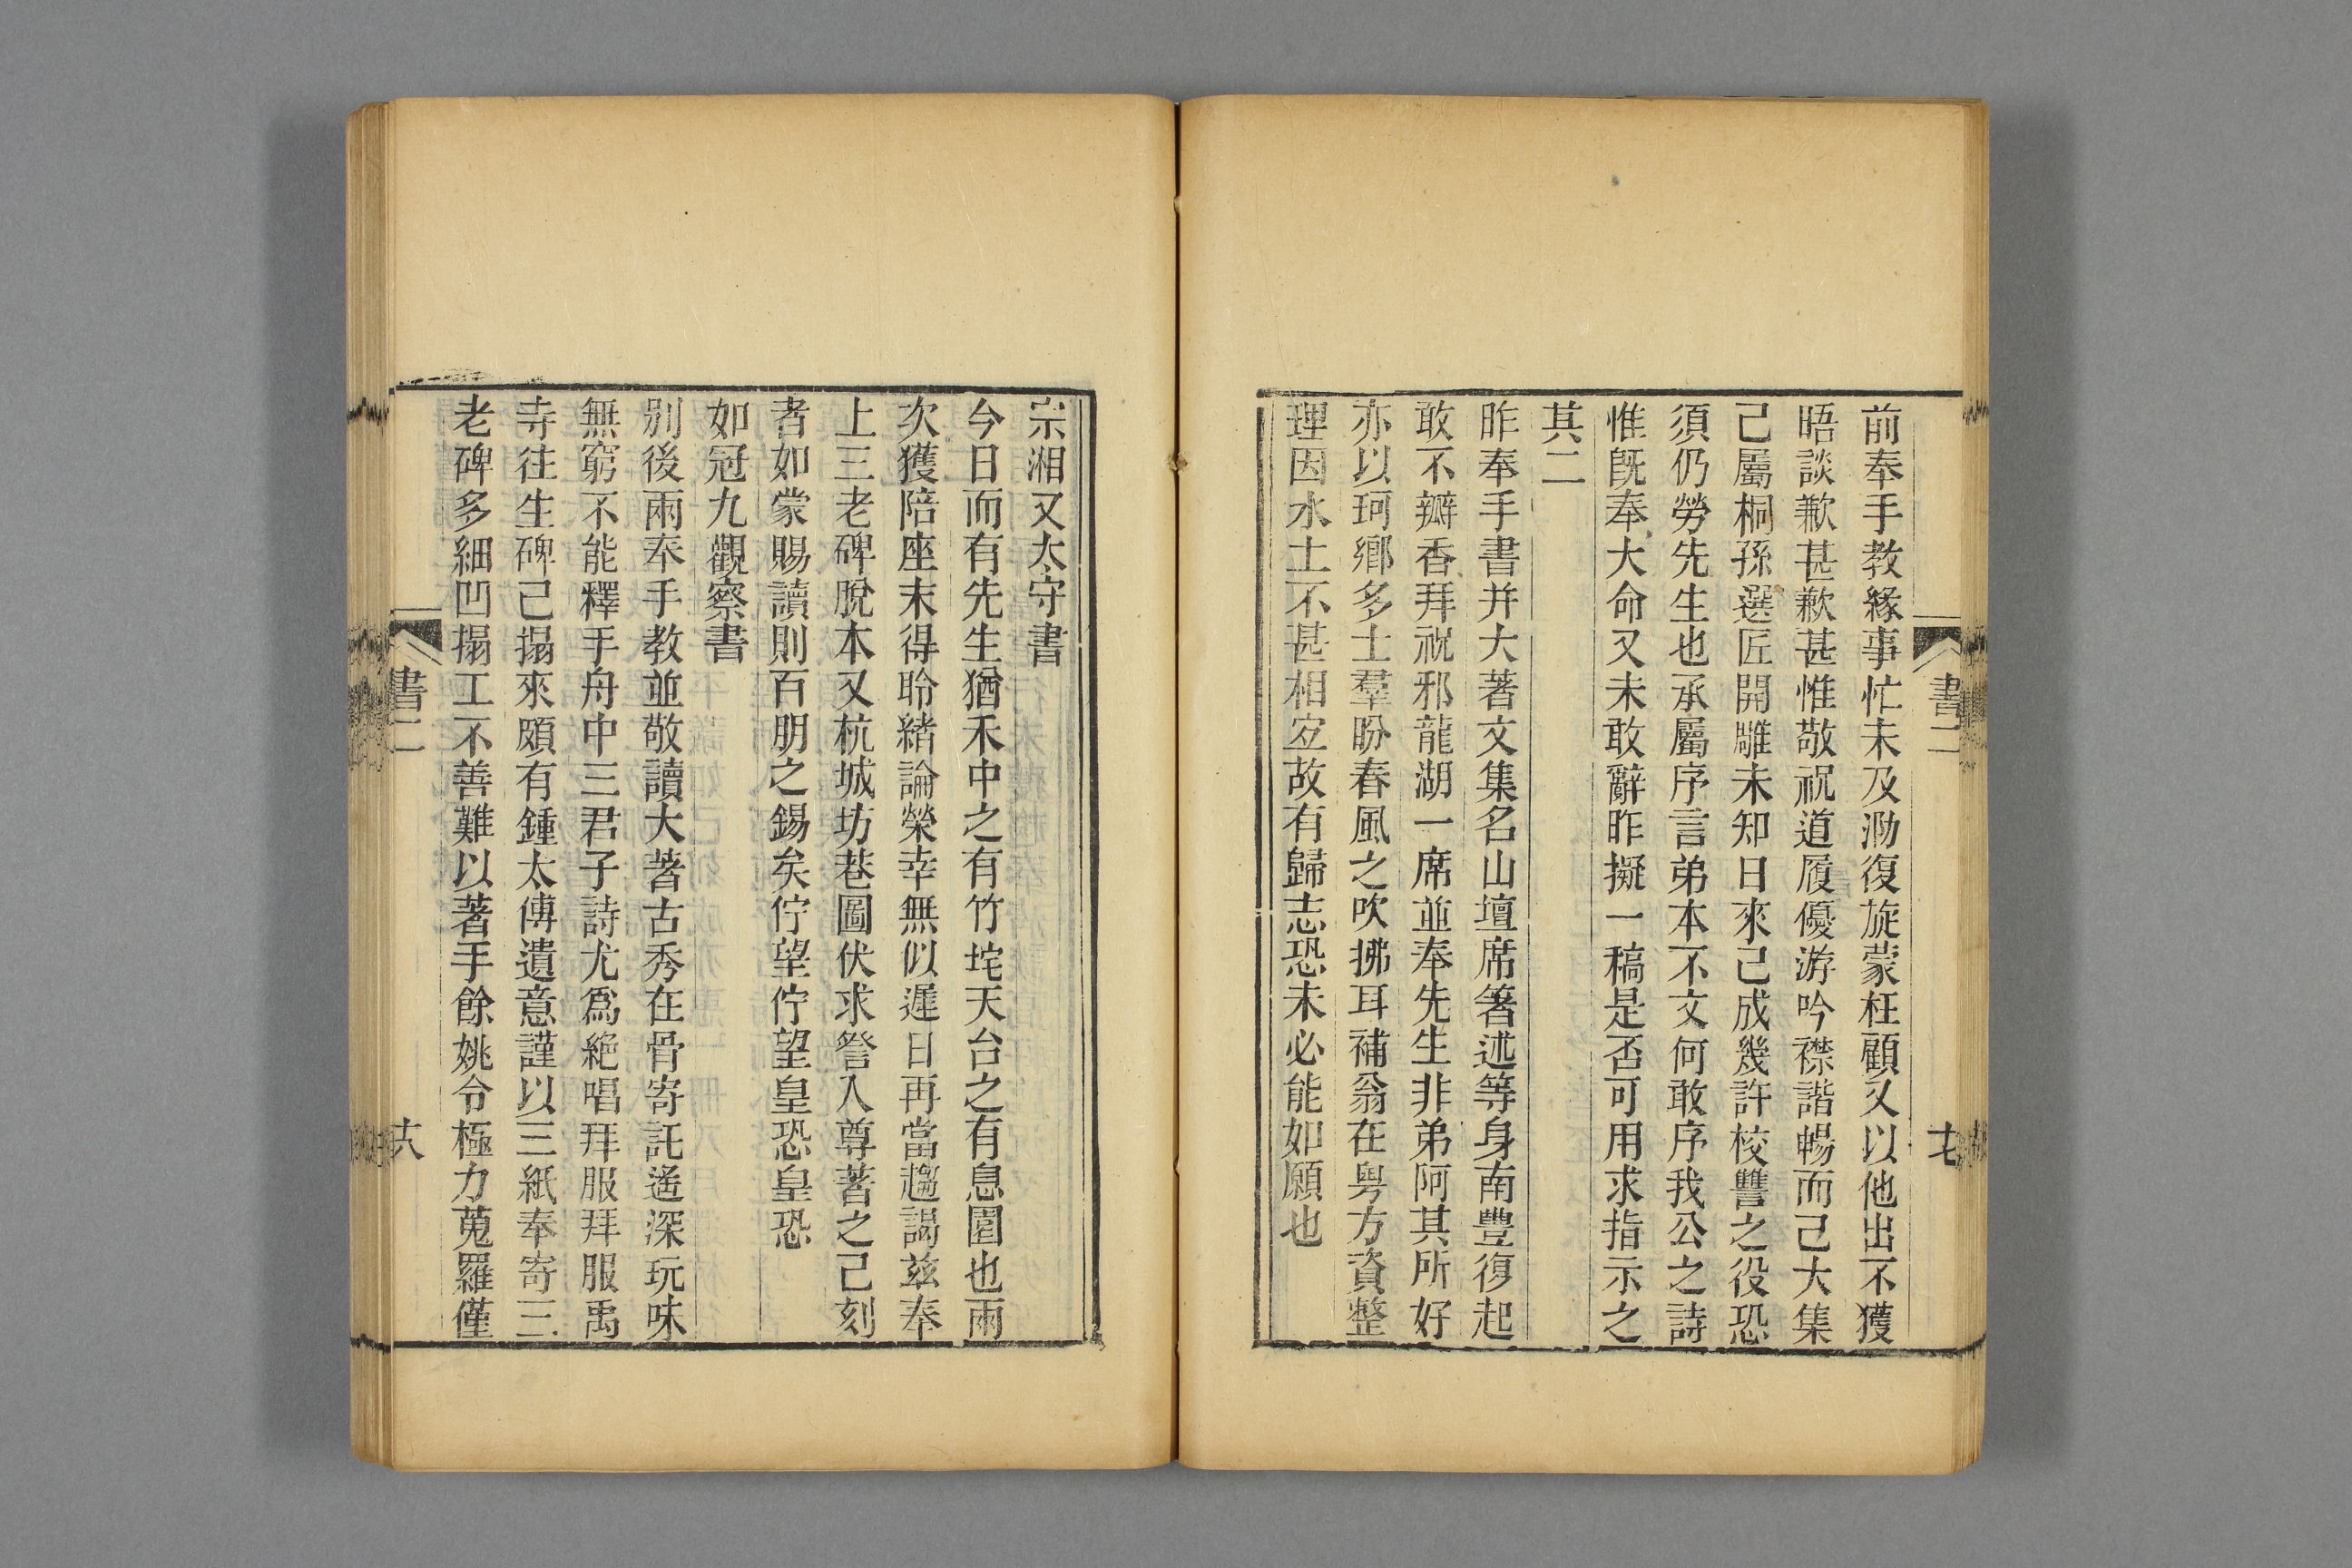 前奉手教緣事忙未及泐復旋蒙枉顧又以他出不獲
晤談歉甚歉甚惟敬祝道履優游吟襟諧暢而己大集
己屬桐孫選匠開雕未知日來己成幾許校讐之役恐
須仍勞先生也承屬序言弟本不文何敢序我公之詩
惟旣奉大命又未敢辭昨擬一稿是否可用求指示之
其二
昨奉手書并大著文集名山壇席箸述等身南豐復起
敢不瓣香拜祝邪龍湖一席並奉先生非弟阿其所好
亦以珂鄉多士羣盼春風之吹拂耳補翁在粤方資整
理因水土不甚相宜故有歸志恐未必能如願也
書二
十七
宗湘文太守書
今日而有先生猶禾中之有竹垞天台之有息園也兩
次獲陪座末得聆緒論榮幸無似遲日再當趨謁茲奉
上三老碑脫本又杭城坊巷圖伏求詧入尊著之己刻
者如蒙賜讀則百朋之錫矣佇望佇望皇恐皇恐
如冠九觀察書
別後兩奉手教並敬讀大著古秀在骨寄託遙深玩味
無窮不能釋手舟中三君子詩尤爲絕唱拜服拜服禹
寺往生碑己搨來頗有鍾太傅遺意謹以三紙奉寄三
老碑多細凹搨工不善難以著手餘姚令極力蒐羅僅
書二
十八